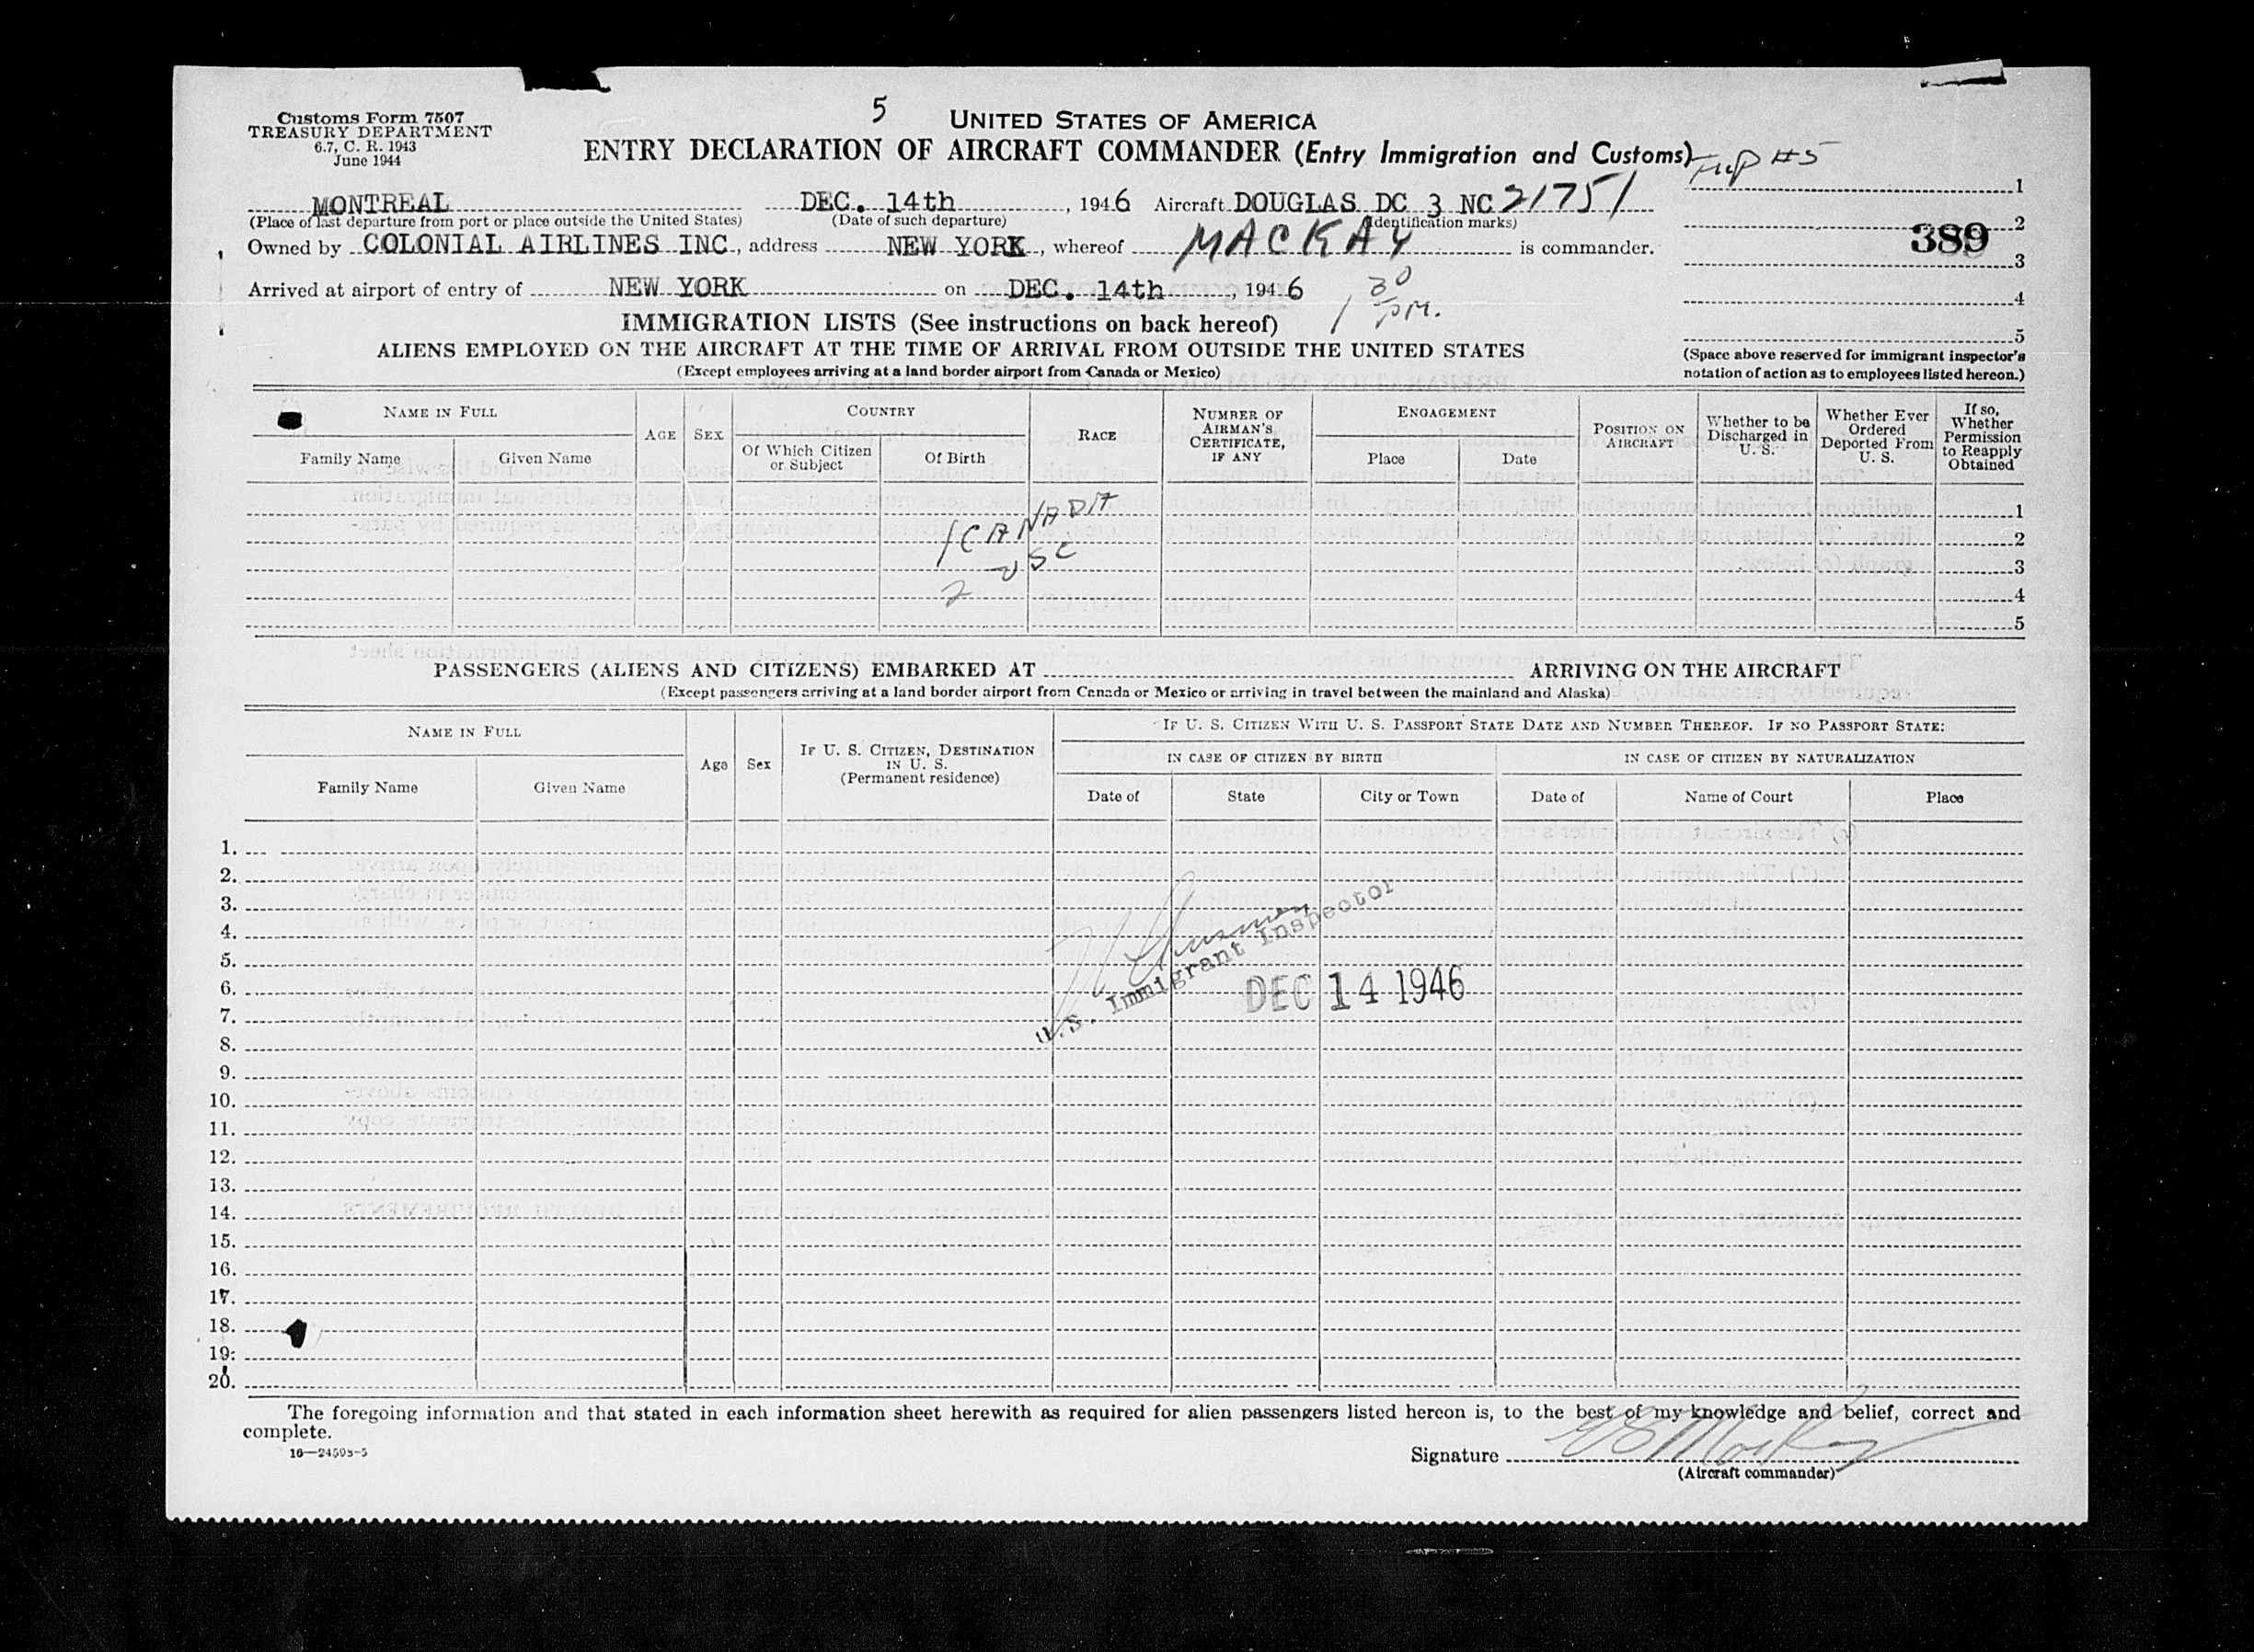 Customs Form 7507
TREASURY DEPARTMENT
6.7, C. R. 1943
June 1944
5
UNITED STATES OF AMERICA
ENTRY DECLARATION OF AIRCRAFT COMMANDER (Entry Immigration and Customs)
Trip #5
1
MONTREAL DEC. 14th, 1946 Aircraft DOUGLAS DC 3 NC 21751
(Place of last departure from port or place outside the United States) (Date of such departure) (Identification marks)
2
389
Owned by COLONIAL AIRLINES INC., address NEW YORK, whereof MACKAY is commander.
3
Arrived at airport of entry of NEW YORK on DEC. 14th, 1946 1 30 PM.
4
IMMIGRATION LISTS (See instructions on back hereof)
5
ALIENS EMPLOYED ON THE AIRCRAFT AT THE TIME OF ARRIVAL FROM OUTSIDE THE UNITED STATES
(Except employees arriving at a land border airport from Canada or Mexico)
(Space above reserved for immigrant inspector's
notation of action as to employees listed hereon.)
NAME IN FULL
Family Name
Given Name
AGE
SEX
COUNTRY
Of Which Citizen
or Subject
Of Birth
RACE
NUMBER OF
AIRMAN'S
CERTIFICATE,
IF ANY
ENGAGEMENT
Place
Date
POSITION ON
AIRCRAFT
Whether to be
Discharged in
U. S.
Whether Ever
Ordered
Deported From
U. S.
If so,
Whether
Permission
to Reapply
Obtained
1 CANADA
2 USC
1
2
3
4
5
PASSENGERS (ALIENS AND CITIZENS) EMBARKED AT ARRIVING ON THE AIRCRAFT
(Except passengers arriving at a land border airport from Canada or Mexico or arriving in travel between the mainland and Alaska)
NAME IN FULL
Family Name
Given Name
Age
Sex
IF U. S. CITIZEN, DESTINATION
IN U. S.
(Permanent residence)
IF U. S. CITIZEN WITH U. S. PASSPORT STATE DATE AND NUMBER THEREOF. IF NO PASSPORT STATE:
IN CASE OF CITIZEN BY BIRTH
IN CASE OF CITIZEN BY NATURALIZATION
Date of
State
City or Town
Date of
Name of Court
Place
1.
2.
3.
4.
5.
6.
7.
8.
9.
10.
11.
12.
13.
14.
15.
16.
17.
18.
19.
20.
U.S. Immigrant Inspector
DEC 14 1946
The foregoing information and that stated in each information sheet herewith as required for alien passengers listed hereon is, to the best of my knowledge and belief, correct and
complete.
16—24593-5
Signature
(Aircraft commander)